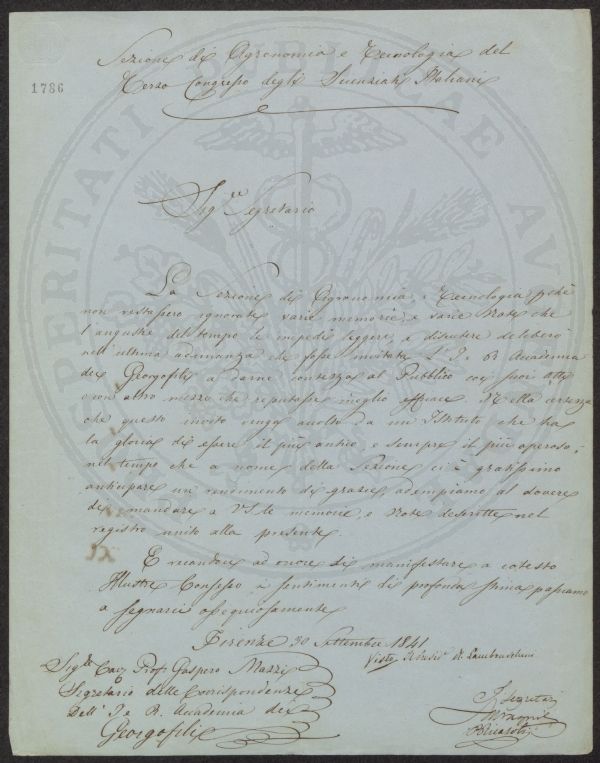 Sezione di Agronomia e Tecnologia del
Terzo Congresso degli Scienziati Italiani
1786
Sig.re Segretario
La Sezione di Agronomia e Tecnologia perché
non restassero ignorate varie memorie, e varie Note che
l'angustie del tempo le impedì leggere, e discutere deliberò
nell'ultima adunanza che fosse invitata L'I. e R. Accademia
dei Georgofili a darne contezza al Pubblico coi suoi atti
o con altro mezzo che reputasse meglio efficace. Nella certezza
che questo invito venga accolto da un Istituto che ha
la gloria di essere il più antico, e sempre il più operoso,
nel tempo che a nome della Sezione ci è gratissimo
anticipare un rendimento di grazie, adempiamo al dovere
di mandare a VS. le memorie, e Note descritte nel
registro unito alla presente.
E recandoci ad onore di manifestare a cotesto
Illustre Consesso i sentimenti di profonda stima passiamo
a segnarci ossequiosamente
Firenze 30 Settembre 1841
Visto Il Presid. R. Lambruschini
Sig.re Cav. Prof. Gaspero Mazzi
Segretario delle Corrispondenze
Dell' I. e R. Accademia dei
Georgofili
I Segretari
B Ricasoli
PROSPERITATI PUBLICAE AU